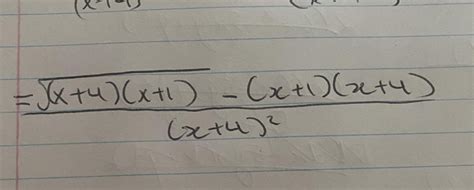 = √(x+4)(x+1) - (x+1)(x+4)
(x+4)²